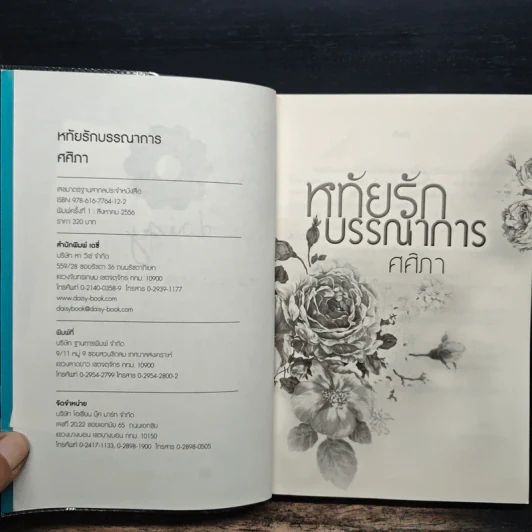 หทัยรักบรรณาการ
ศศิภา
เลขมาตรฐานสากลประจำหนังสือ
ISBN 978-616-7764-12-2
พิมพ์ครั้งที่ 1 : สิงหาคม 2556
ราคา 320 บาท
สำนักพิมพ์ เดซี่
บริษัท หา วีเซ่ จำกัด
559/28 ซอยรัชดา 36 ถนนรัชดาภิเษก
แขวงจันทรเกษม เขตจตุจักร กทม. 10900
โทรศัพท์ 0-2140-0358-9 โทรสาร 0-2939-1177
www.daisy-book.com
daisybook@daisy-book.com
พิมพ์ที่
บริษัท ฐานการพิมพ์ จำกัด
9/11 หมู่ 9 ซอยสวนชิดลม เทศบาลสงเคราะห์
แขวงลาดยาว เขตจตุจักร กทม. 10900
โทรศัพท์ 0-2954-2799 โทรสาร 0-2954-2800-2
จัดจำหน่าย
บริษัท โอเชี่ยน บุ๊ค มาร์ท จำกัด
เลขที่ 20,22 ซอยเอกชัย 65 ถนนเอกชัย
แขวงบางบอน เขตบางบอน กทม. 10150
โทรศัพท์ 0-2417-1133, 0-2898-1900 โทรสาร 0-2898-0505
หทัยรัก
บรรณาการ
ศศิภา